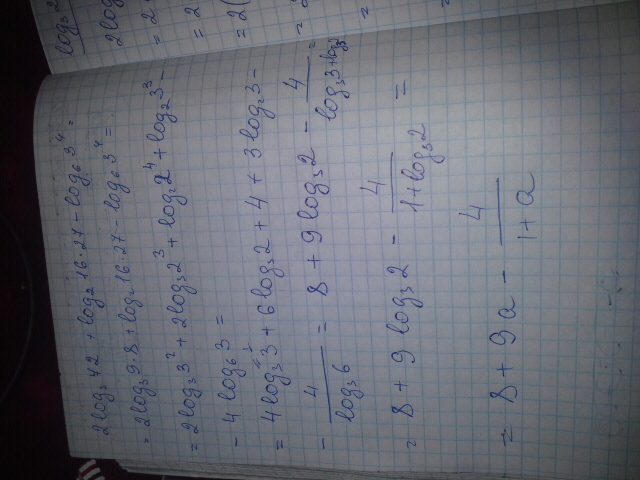 2log₃72 + log₂16·27 - log₆3⁴ =
= 2log₃9·8 + log₂16·27 - log₆3⁴ =
= 2log₃3² + 2log₃2³ + log₂2⁴ + log₂3³ -
- 4log₆3 =
= 4log₃3 + 6log₃2 + 4 + 3log₂3 -
- 4/log₃6 = 8 + 9log₃2 - 4/(log₃3+log₃2) =
= 8 + 9log₃2 - 4/(1+log₃2) =
= 8 + 9a - 4/(1+a)
log₃2
2log
= 2
= 2
= 2(
=
=
=